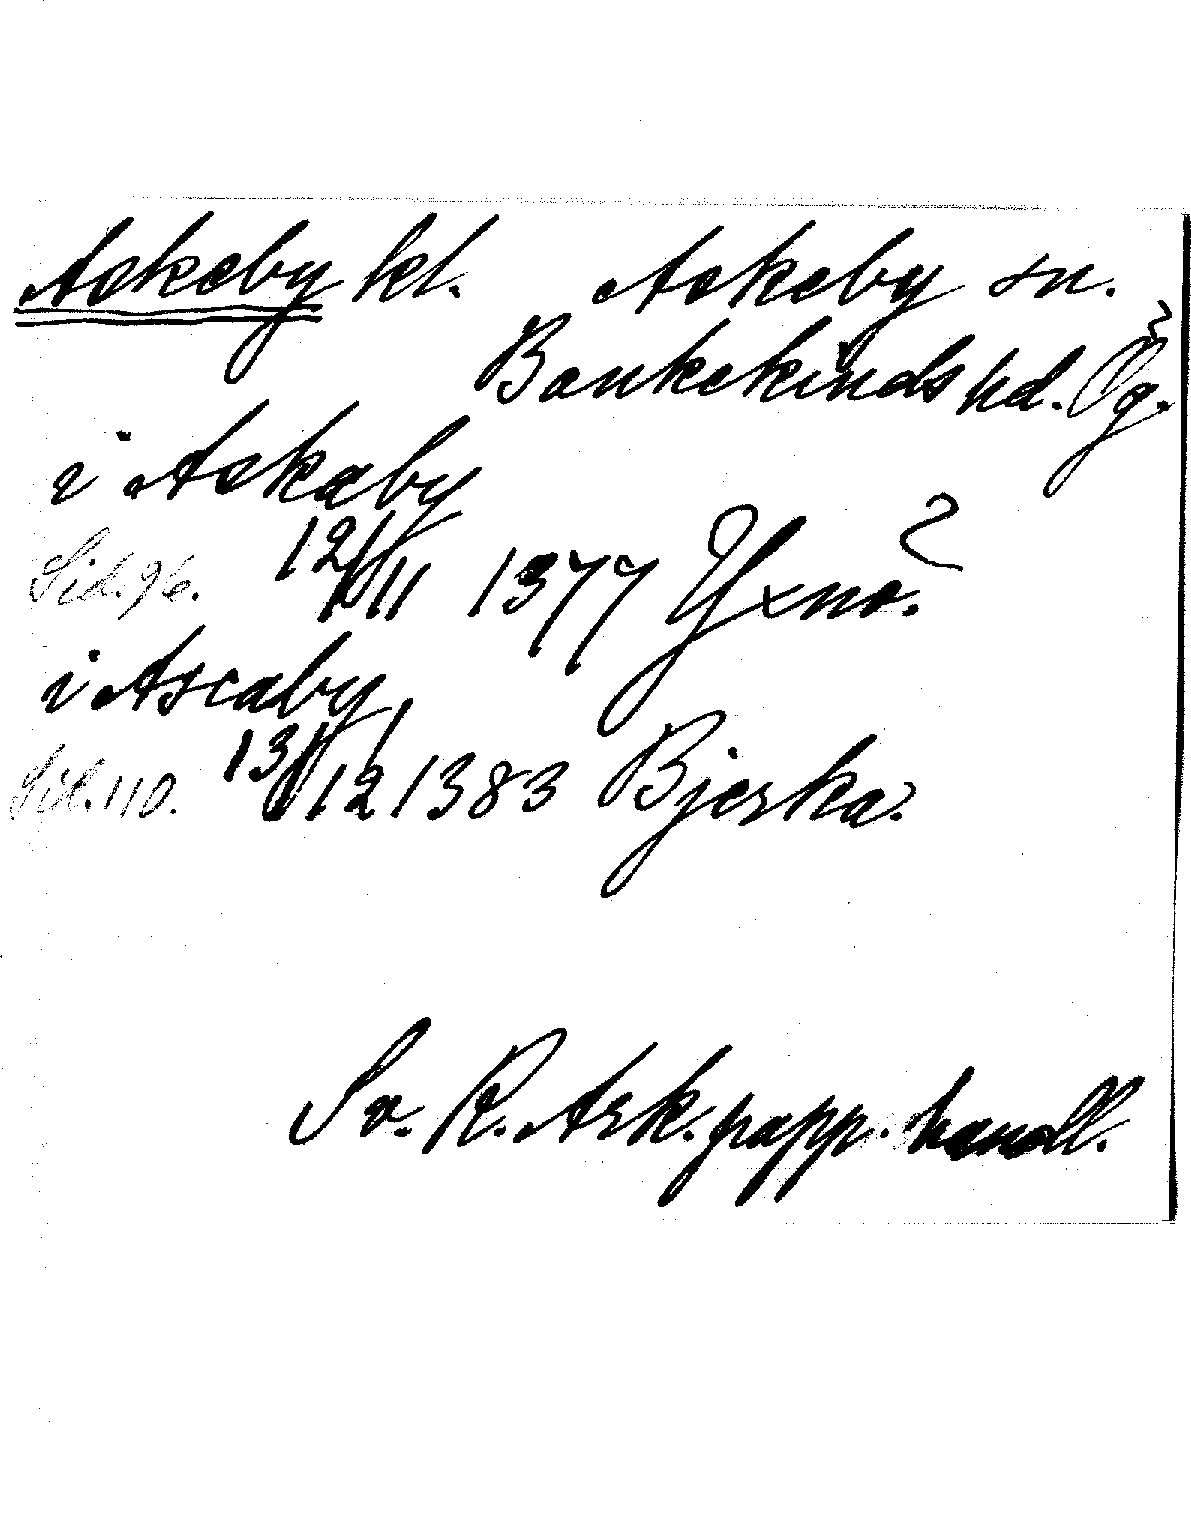 Askeby kl. Askeby sn.
Bankekinds hd. Ög.
i Askaby
Sid. 96. 12/11 1377 Yxnö.
i Ascaby
Sid. 110. 13/12 1383 Bjerka.
Sv. R. Ark. papp. handl.